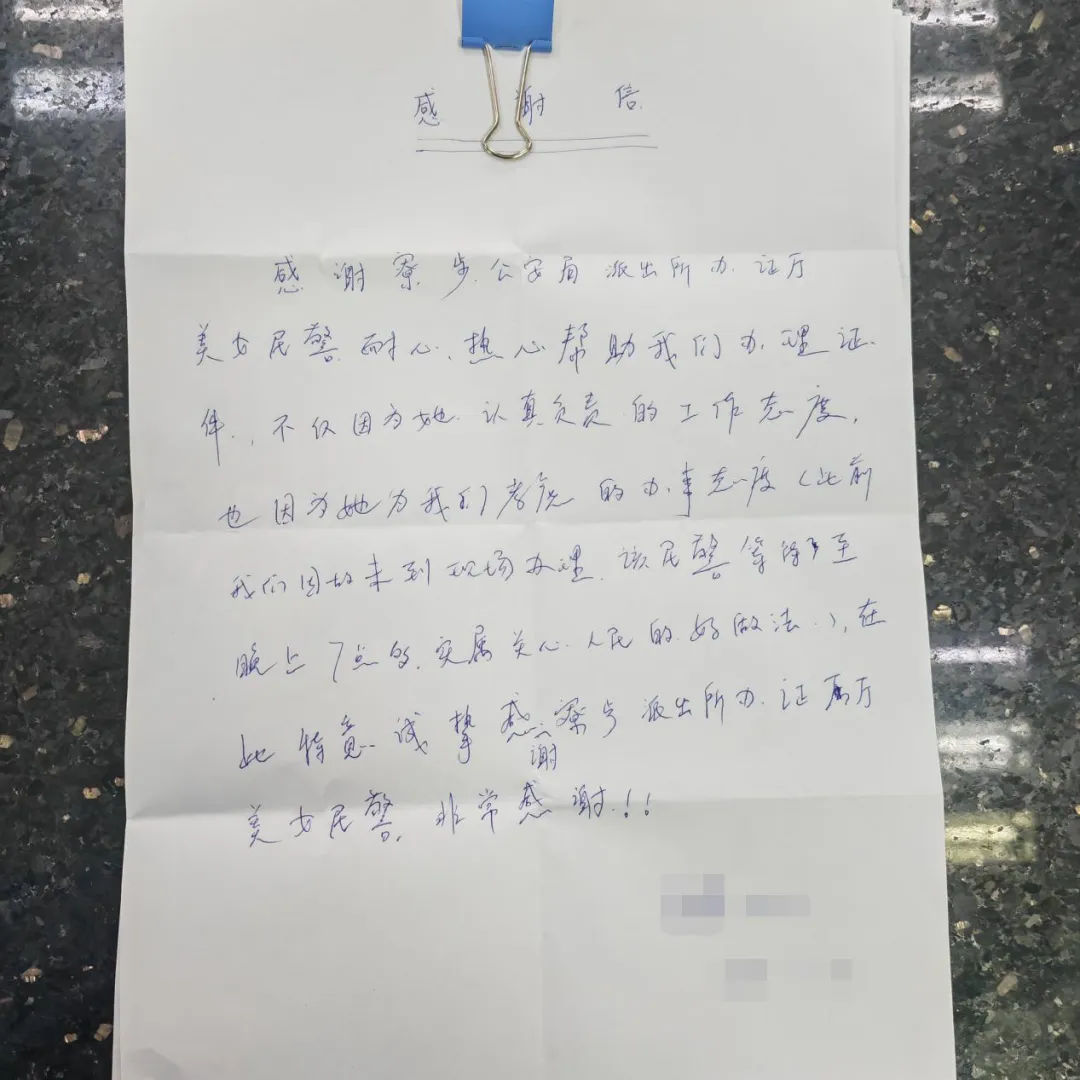 感谢信
感谢寮步公安局派出所办证厅
美女民警耐心、热心帮助我们办理证
件,不仅因为她认真负责的工作态度,
也因为她为我们考虑的办事态度(此前
我们因故未到现场办理,该民警等待至
晚上7点多,实属关心人民的好做法),在
此特意诚挚感谢寮步派出所办证厅
美女民警,非常感谢!!